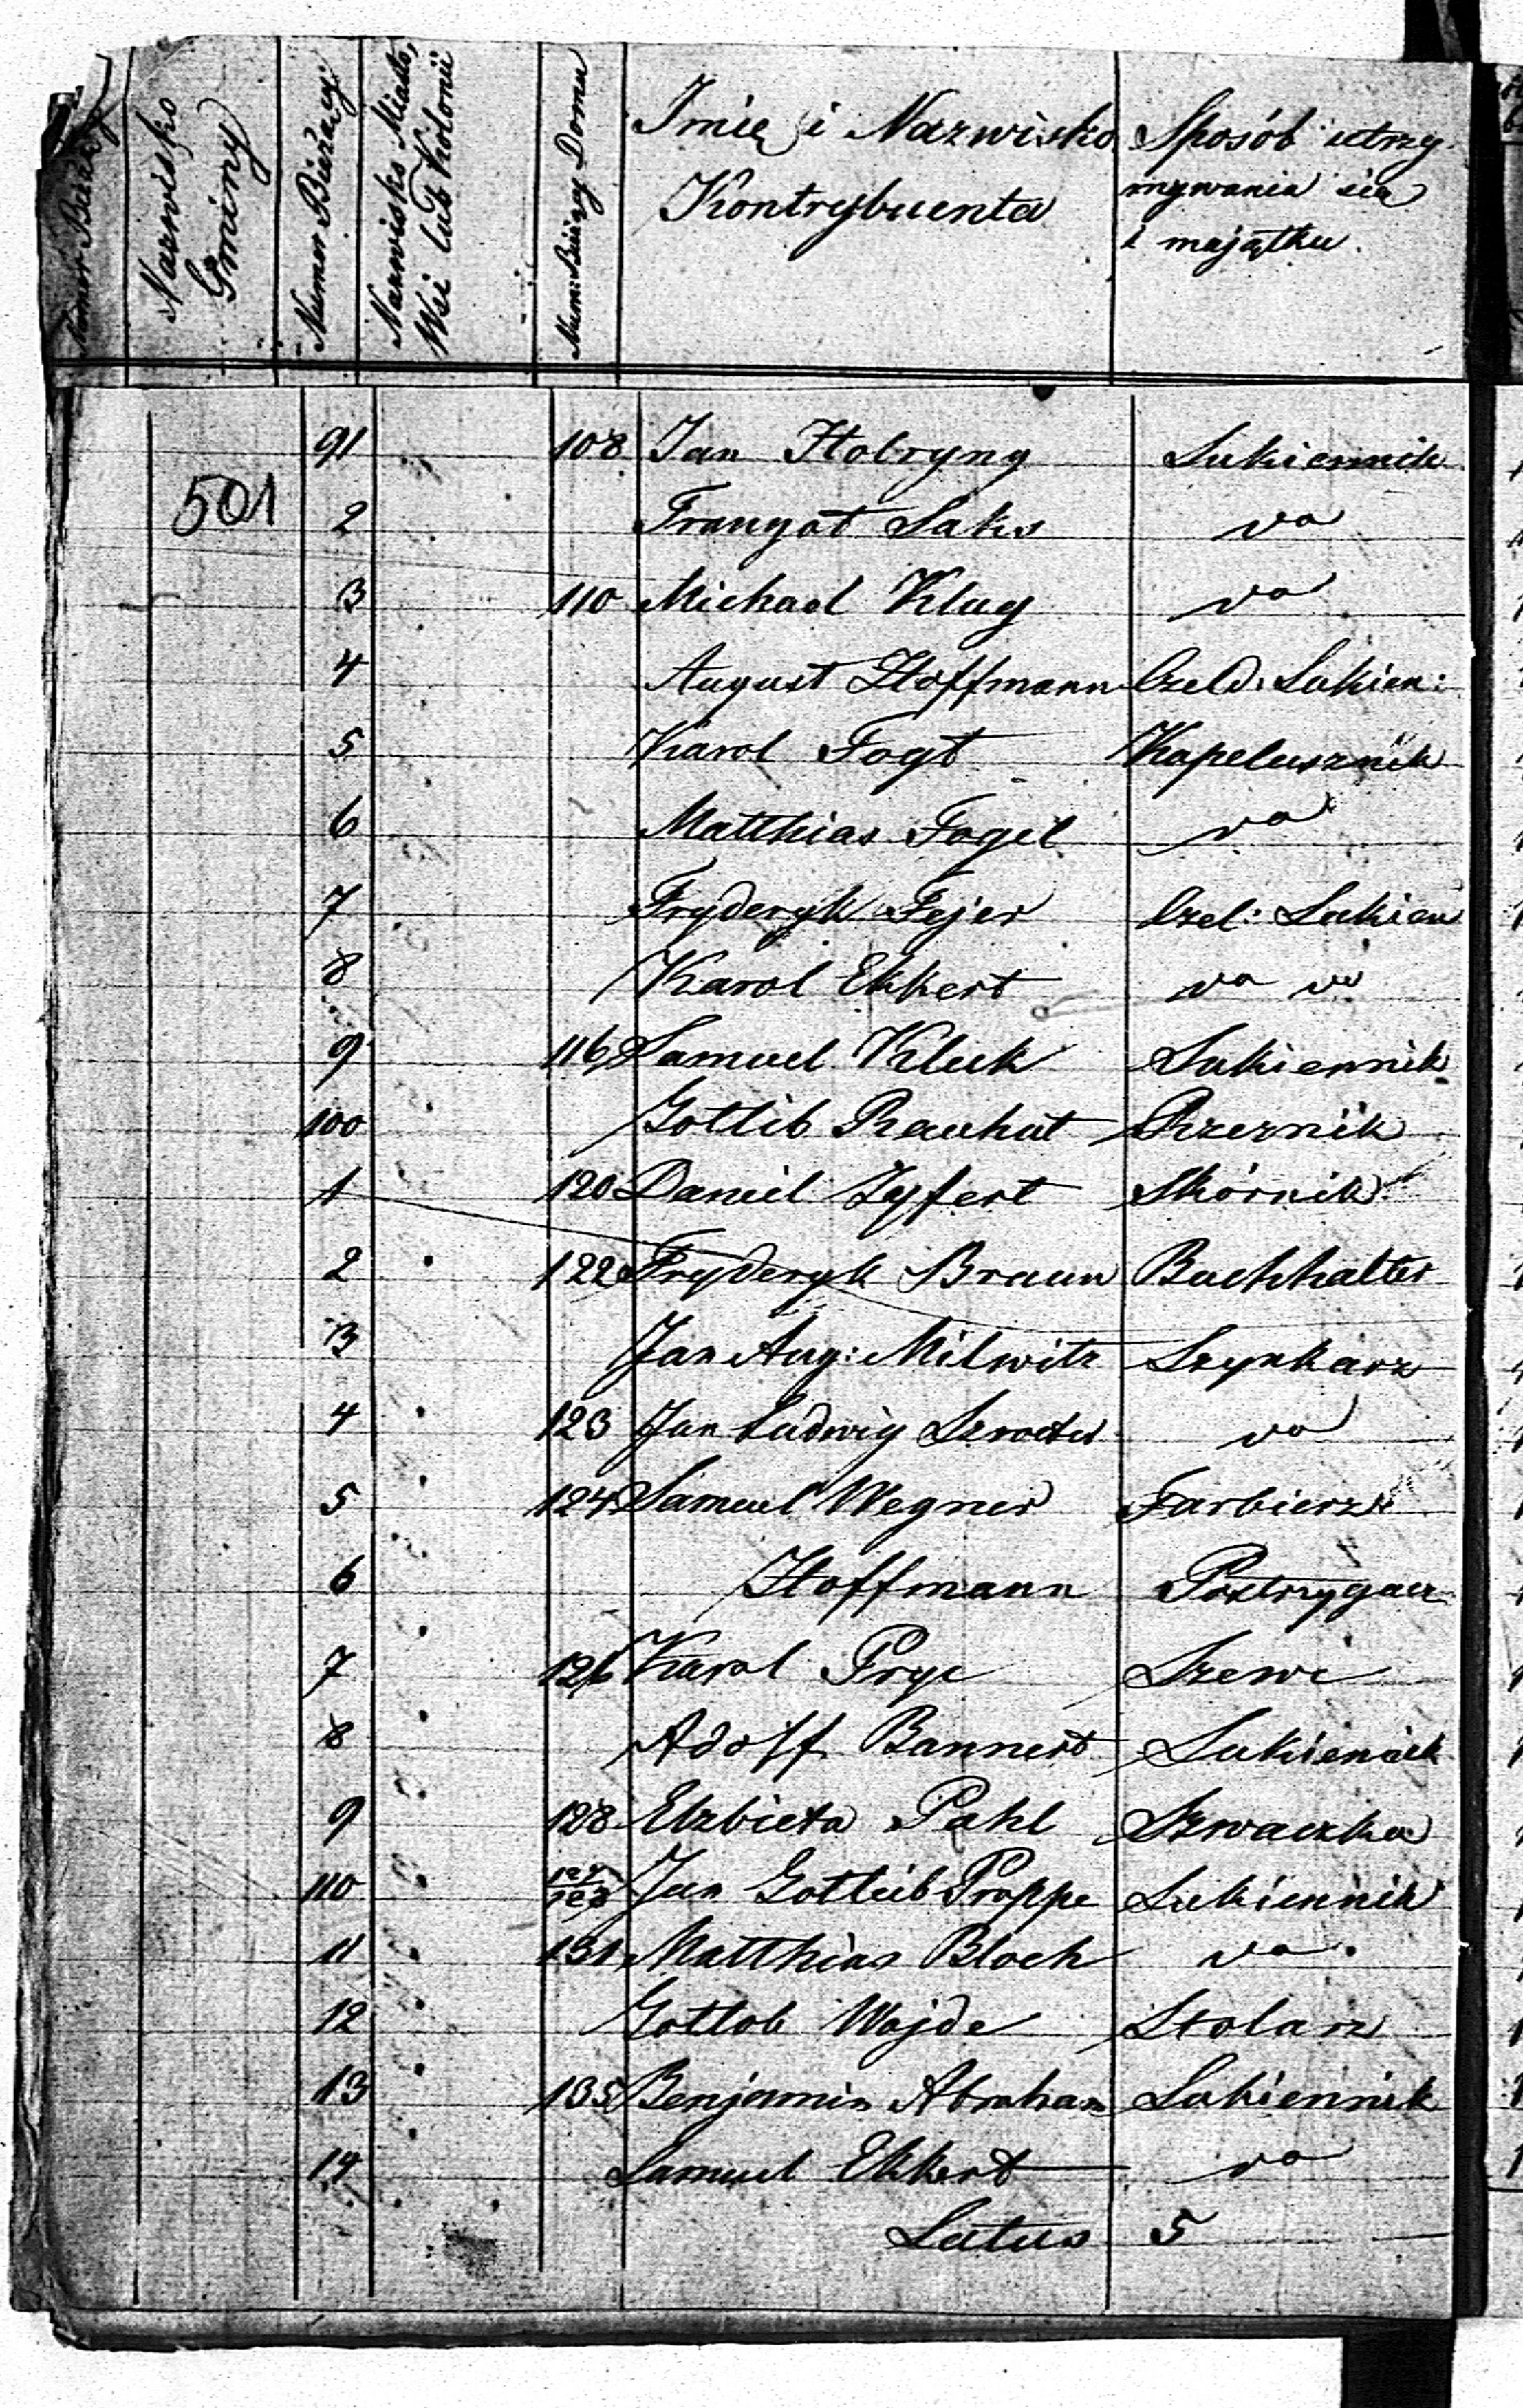 Numer Bieżący
Nazwisko Gminy
Numer Bieżący
Nazwisko Miasta, Wsi lub Kolonii
Num: Bieżący Domu
Imie i Nazwisko Kontrybuenta
Sposób utrzymywania sie i majątku.
501
91 108 Jan Holryng Sukiennik
2 Traugot Saks vo
3 110 Michael Klug vo
4 August Hoffmann Czeld: Sukien:
5 Karol Fogt Kapelusznik
6 Matthias Fogel vo
7 Fryderyk Fejer Czel: Sukien
8 Karol Ekkert vo vo
9 116 Samuel Kluk Sukiennik
100 Gotlib Rauhut Rzeznik
1 120 Daniel Zyfert Skórnik
2 122 Fryderyk Braun Buchhalter
3 Jan Aug: Milwitz Szynkarz
4 123 Jan Ludwig vo
5 124 Samuel Wegner Farbierz
6 Hoffmann Postrzygacz
7 126 Karol Pryc Szewc
8 Adolf Bannert Sukiennik
9 128 Elzbieta Pahl Szwaczka
110 Jan Gottlieb Proppe Sukiennik
11 131 Matthias Bloch vo
12 Gottlob Wojde Stolarz
13 135 Benjamin Abraham Sukiennik
14 Samuel Ekkert vo
Latus 5